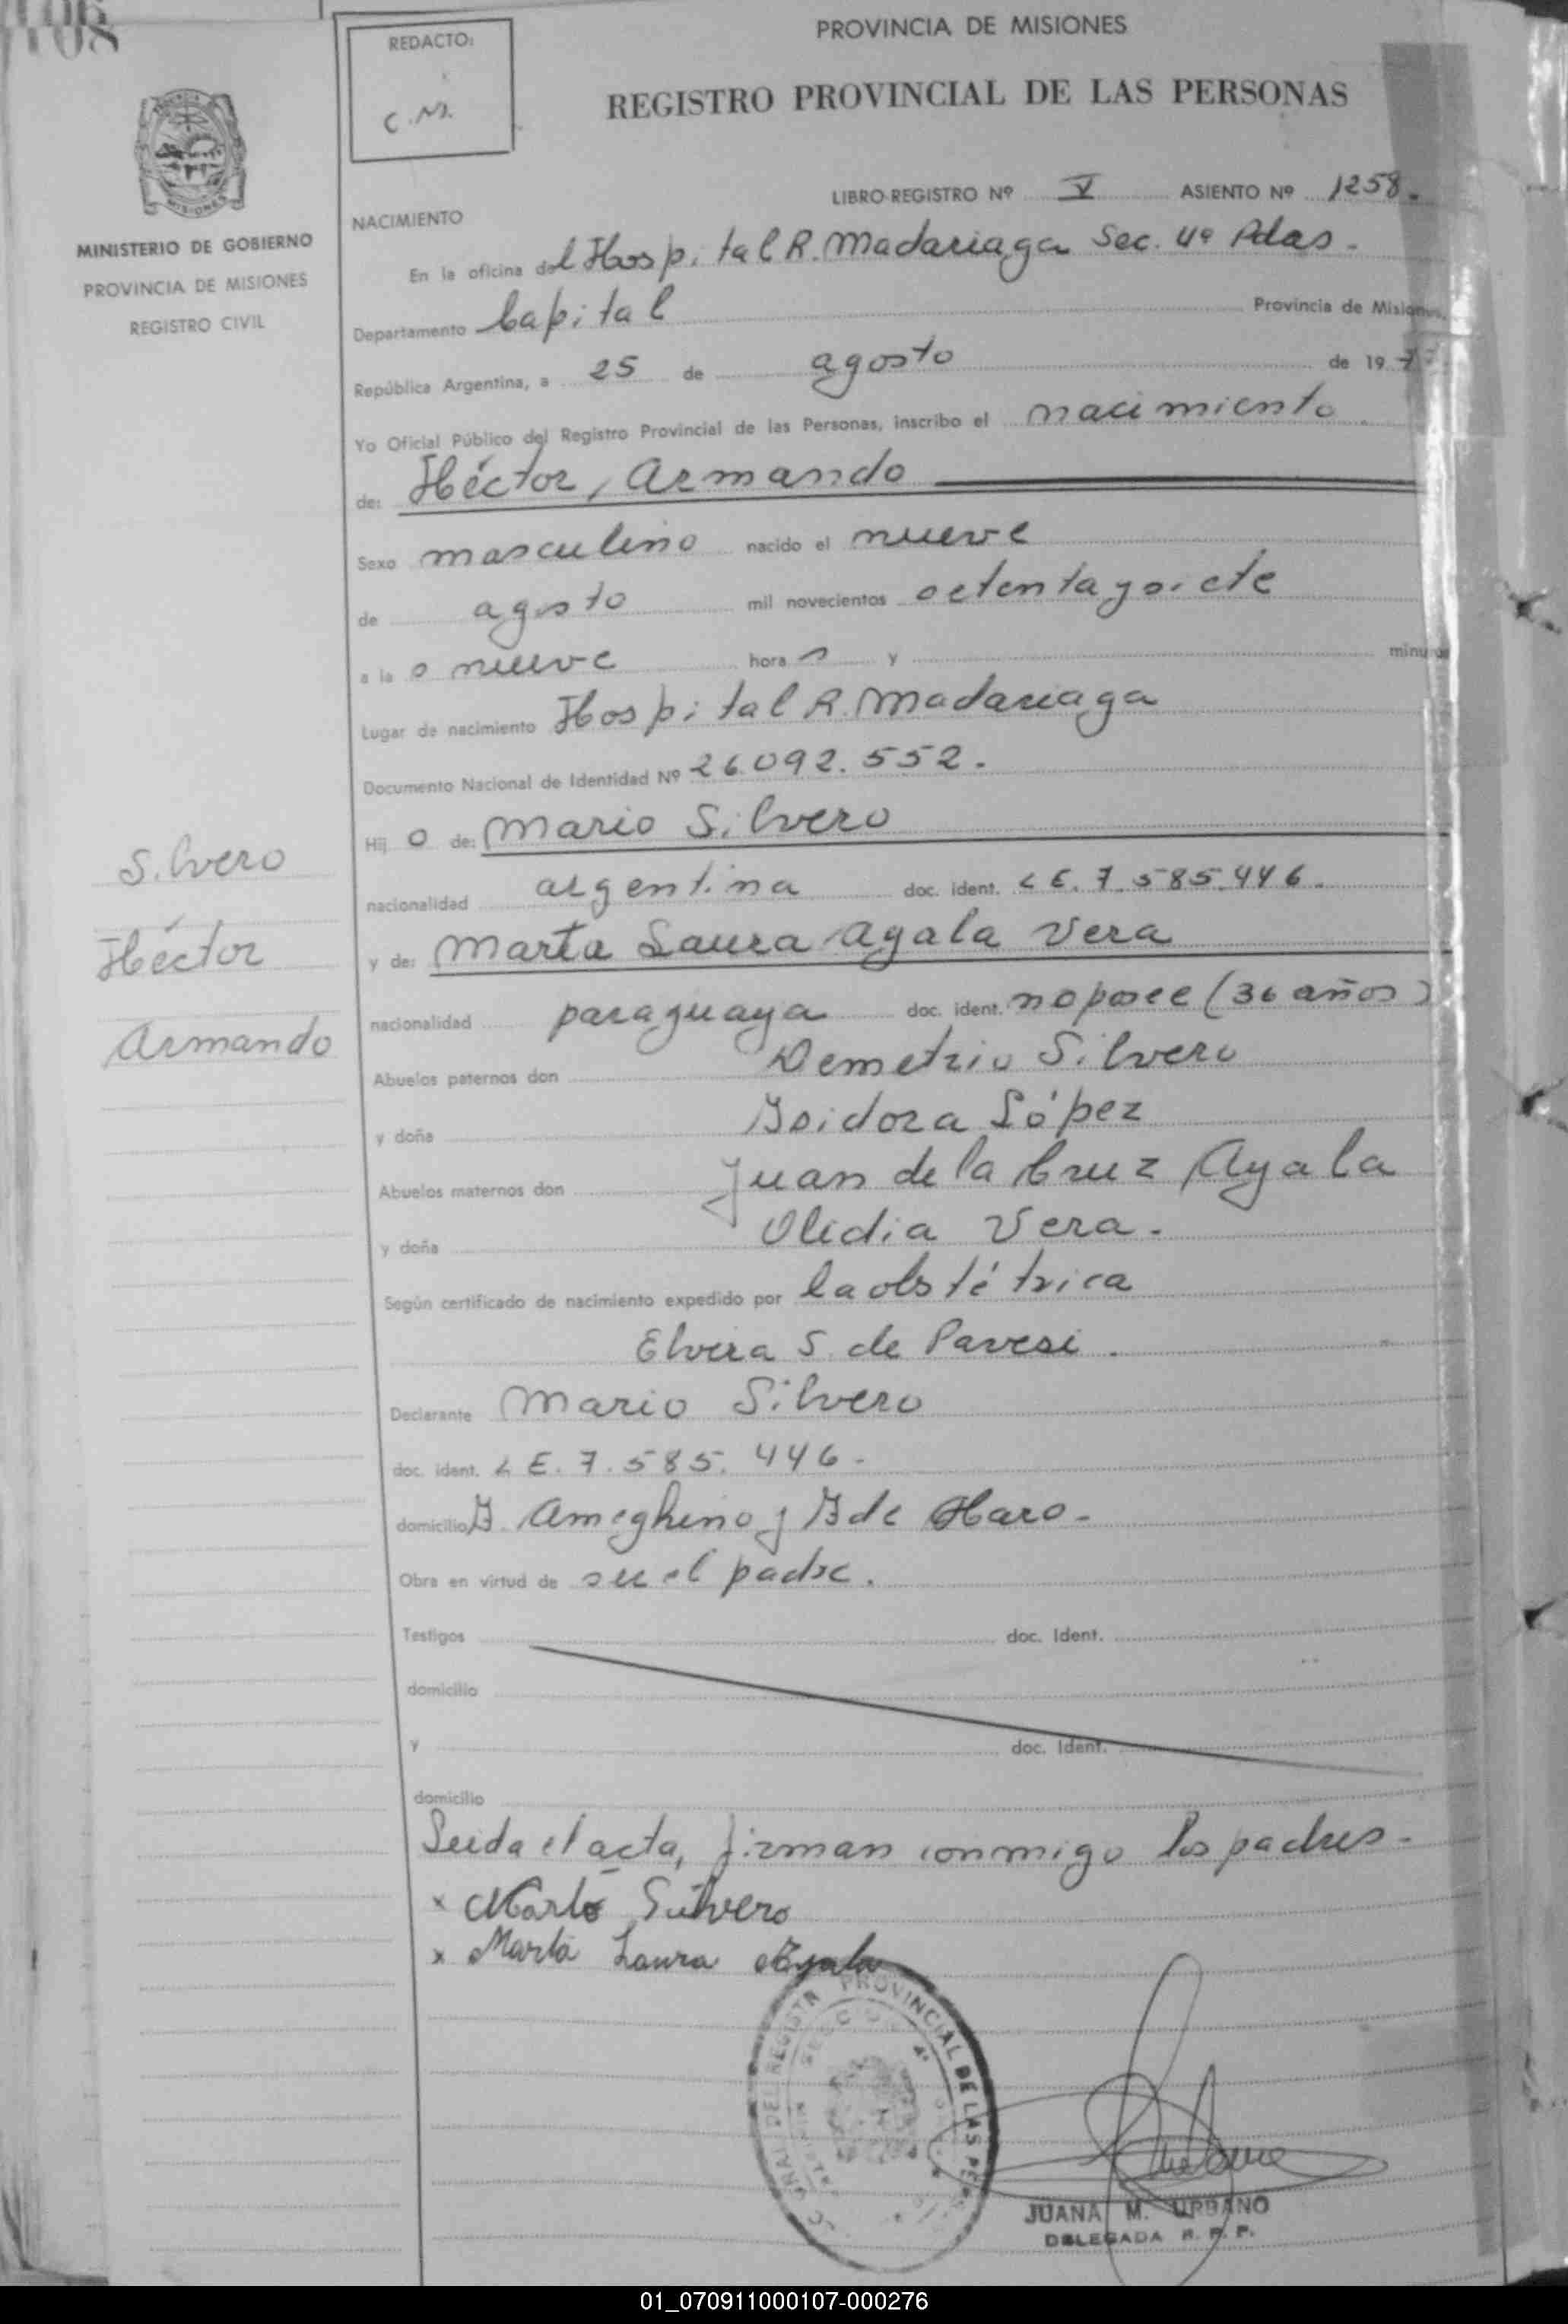 PROVINCIA DE MISIONES
REDACTO:
C.M.
REGISTRO PROVINCIAL DE LAS PERSONAS
MISIONES
MINISTERIO DE GOBIERNO
PROVINCIA DE MISIONES
REGISTRO CIVIL
LIBRO-REGISTRO Nº V ASIENTO Nº 1258.
NACIMIENTO
En la oficina del Hospital R. Madariaga Sec. 4ª Pdas.
Departamento Capital Provincia de Misiones,
República Argentina, a 25 de agosto de 197
Yo Oficial Público del Registro Provincial de las Personas, inscribo el nacimiento
de: Héctor, Armando
Sexo masculino nacido el nueve
de agosto mil novecientos setenta y siete
a la s nueve hora s y minutos
Lugar de nacimiento Hospital R. Madariaga
Documento Nacional de Identidad Nº 26.092.552.
Hij o de: Mario Silvero
nacionalidad argentina doc. ident. L E. 7.585.446.
y de: Marta Laura Ayala Vera
nacionalidad paraguaya doc. ident. no posee (36 años)
Silvero
Héctor
Armando
Abuelos paternos don Demetrio Silvero
y doña Isidora López
Abuelos maternos don Juan de la Cruz Ayala
y doña Olidia Vera.
Según certificado de nacimiento expedido por la obstétrica
Elvira S. de Pavesi.
Declarante Mario Silvero
doc. ident. L E. 7.585.446.
domicilio Ameghino y I de Haro.
Obra en virtud de ser el padre.
Testigos doc. Ident.
domicilio
y doc. Ident.
domicilio
Leida el acta, firman conmigo los padres.
x Mario Silvero
x Marta Laura Ayala
GRAL DEL REGISTR PROVINCIAL DE LAS PE
JUANA M. URBANO
DELEGADA R. P. P.
01_070911000107-000276